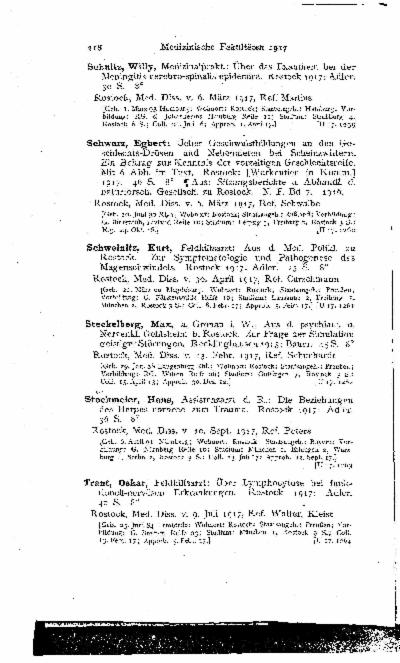 218 Medizinische Fakultäten 1917
Schultz, Willy, Medizinalprakt.: Über das Exanthem bei der
Meningitis cerebro-spinalis epidemica. Rostock 1917: Adler.
30 S. 8°
Rostock, Med. Diss. v. 6. März 1917, Ref. Martius
[Geb. 1. März 93 Hamburg; Wohnort: Rostock; Staatsangeh.: Hamburg; Vor-
bildung: RG. d. Johanneums Hamburg Reife 12; Studium: Straßburg 4,
Rostock 6 S.; Coll. Jun. 16; Approb. 1. April 17.] [U 17. 1259
Schwarz, Egbert: Ueber Geschwulstbildungen an den Ge-
schlechts-Drüsen und Nebennieren bei Scheinzwittern.
Ein Beitrag zur Kenntnis der vorzeitigen Geschlechtsreife.
Mit 6 Abb. im Text. Rostock: [Warkentien in Komm.]
1917. 46 S. 8° ¶ Aus: Sitzungsberichte u. Abhandl. d.
naturforsch. Gesellsch. zu Rostock. N. F. Bd 7. 1916.
Rostock, Med. Diss. v. 5. März 1917, Ref. Schwalbe
Rostock; Staatsangeh.: Vorbildung:
G. Reife 10; Studium: Leipzig Freiburg Rostock
[U 17. 1260
Schweinitz, Kurt, Feldhilfsarzt: Aus d. Med. Polikl. zu
Rostock. Zur Symptomatologie und Pathogenese des
Magenschwindels. Rostock 1917: Adler. 23 S. 8°
Rostock, Med. Diss. v. 30. April 1917, Ref. Curschmann
[Geb. 22. März 92 Magdeburg; Wohnort: Rostock; Staatsangeh.: Preußen;
Vorbildung: G. Reife 10; Studium: Lausanne 1, Freiburg
München 2, Rostock S.; Coll. 8. Febr. 17; Approb. 5. Febr. 17.] [U 17. 1261
Steckelberg, Max, a. Gronau i. W.: Aus d. psychiatr. u.
Nervenkl. Gehlsheim b. Rostock. Zur Frage der Simulation
geistiger Störungen. Recklinghausen 1915: Bauer. 45 S. 8°
Rostock, Med. Diss. v. 23. Febr. 1917, Ref. Schuchardt
Wohnort: Rostock; Staatsangeh.: Preußen;
Vorbildung: RG. Witten Reife Studium: Göttingen Rostock S.;
Coll. 15. April 13; Approb. 30. Dez. [U 17. 1262
Stockmeier, Hans, Assistenzarzt d. R.: Die Beziehungen
des Herpes corneae zum Trauma. Rostock 1917: Adler.
36 S. 8°
Rostock, Med. Diss. v. 10. Sept. 1917, Ref. Peters
Nürnberg; Wohnort: Rostock; Staatsangeh.: Bayern; Vor-
bildung: G. Nürnberg Reife 10; Studium: München Erlangen 2, Würz-
burg 1, Berlin Rostock S.; Coll. 23. Juli 17; Approb. Sept. 17.]
[U 17. 1263
Trant, Oskar, Feldhilfsarzt: Über Lymphozytose bei funk-
tionell-nervösen Erkrankungen. Rostock 1917: Adler.
40 S. 8°
Rostock, Med. Diss. v. 9. Juli 1917, Ref. Walter, Kleist
[Geb. 23. Juni 84 Wohnort: Rostock; Staatsangeh.: Preußen; Vor-
bildung: G. Bremen Reife 03; Studium: München 1, Rostock 9 S.; Coll.
13. Febr. 17; Approb. 5. Febr. 17.] [U 17. 1264